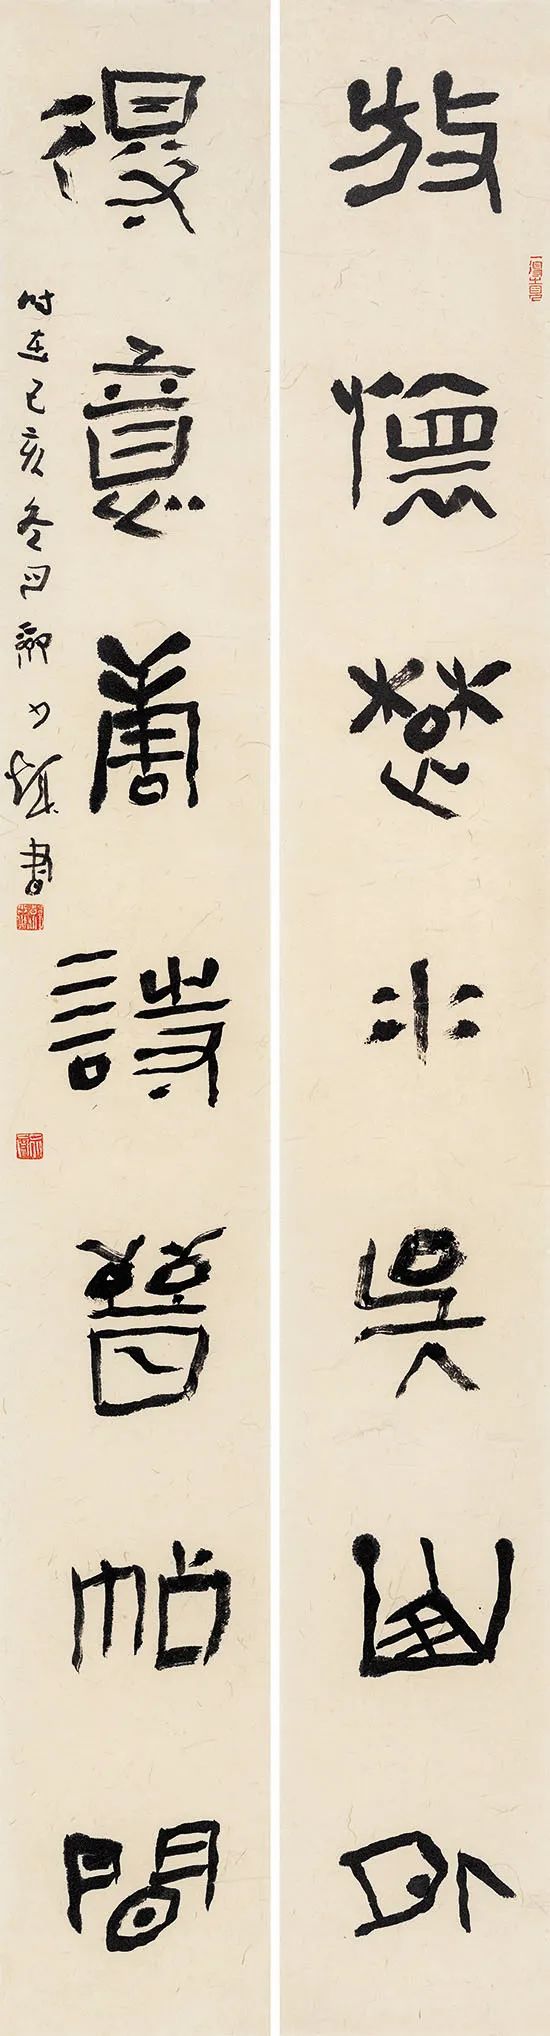 放懷楚水吳山外
得意唐詩晉帖間
時在己亥冬月 書